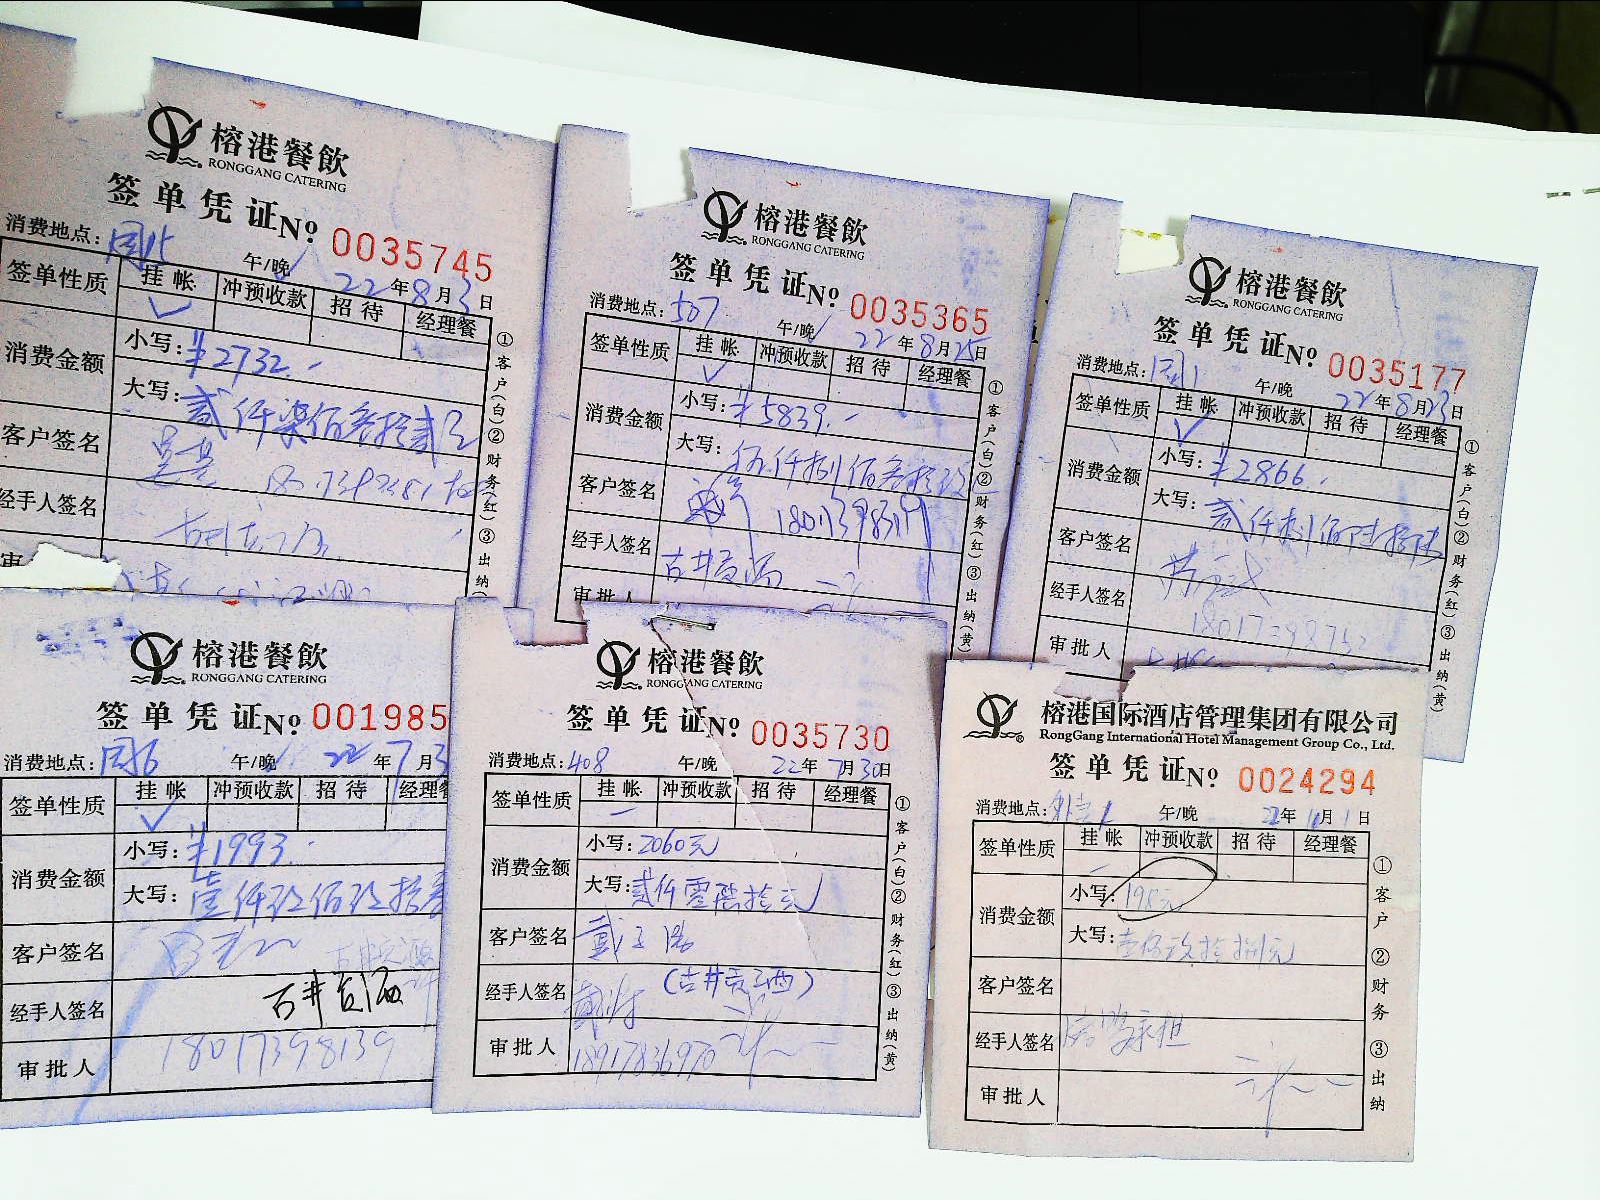 榕港餐飲
RONGGANG CATERING
签单凭证 Nº 0035745
消费地点:
午/晚 22年8月3日
签单性质 挂帐 冲预收款 招待 经理餐
消费金额 小写: ¥2732.-
大写: 贰仟柒佰叁拾贰元
客户签名
经手人签名
审
①客户(白)②财务(红)③出纳
榕港餐飲
RONGGANG CATERING
签单凭证 Nº 0035365
消费地点: 507
午/晚 22年8月25日
签单性质 挂帐 冲预收款 招待 经理餐
消费金额 小写: ¥5839.-
大写: 伍仟捌佰叁拾玖
客户签名
经手人签名 古井贡酒
审批人
①客户(白)②财务(红)③出纳(黄)
榕港餐飲
RONGGANG CATERING
签单凭证 Nº 0035177
消费地点:
午/晚 22年8月23日
签单性质 挂帐 冲预收款 招待 经理餐
消费金额 小写: ¥2866.
大写: 贰仟捌佰陆拾陆
客户签名
经手人签名
审批人
①客户(白)②财务(红)③出纳(黄)
榕港餐飲
RONGGANG CATERING
签单凭证 Nº 001985
消费地点:
午/晚 22年7月3
签单性质 挂帐 冲预收款 招待 经理餐
消费金额 小写: ¥1993.
大写: 壹仟玖佰玖拾叁
客户签名 古井贡酒
经手人签名 古井贡酒
审批人 18017398139
榕港餐飲
RONGGANG CATERING
签单凭证 Nº 0035730
消费地点: 408
午/晚 22年7月30日
签单性质 挂帐 冲预收款 招待 经理餐
消费金额 小写: 2060元
大写: 贰仟零陆拾元
客户签名
(古井贡酒)
经手人签名
审批人 18917836970
①客户(白)②财务(红)③出纳(黄)
榕港国际酒店管理集团有限公司
RongGang International Hotel Management Group Co., Ltd.
签单凭证 Nº 0024294
消费地点:
午/晚 22年11月1日
签单性质 挂帐 冲预收款 招待 经理餐
消费金额 小写: 198元
大写: 壹佰玖拾捌元
客户签名
经手人签名
审批人
①客户 ②财务 ③出纳